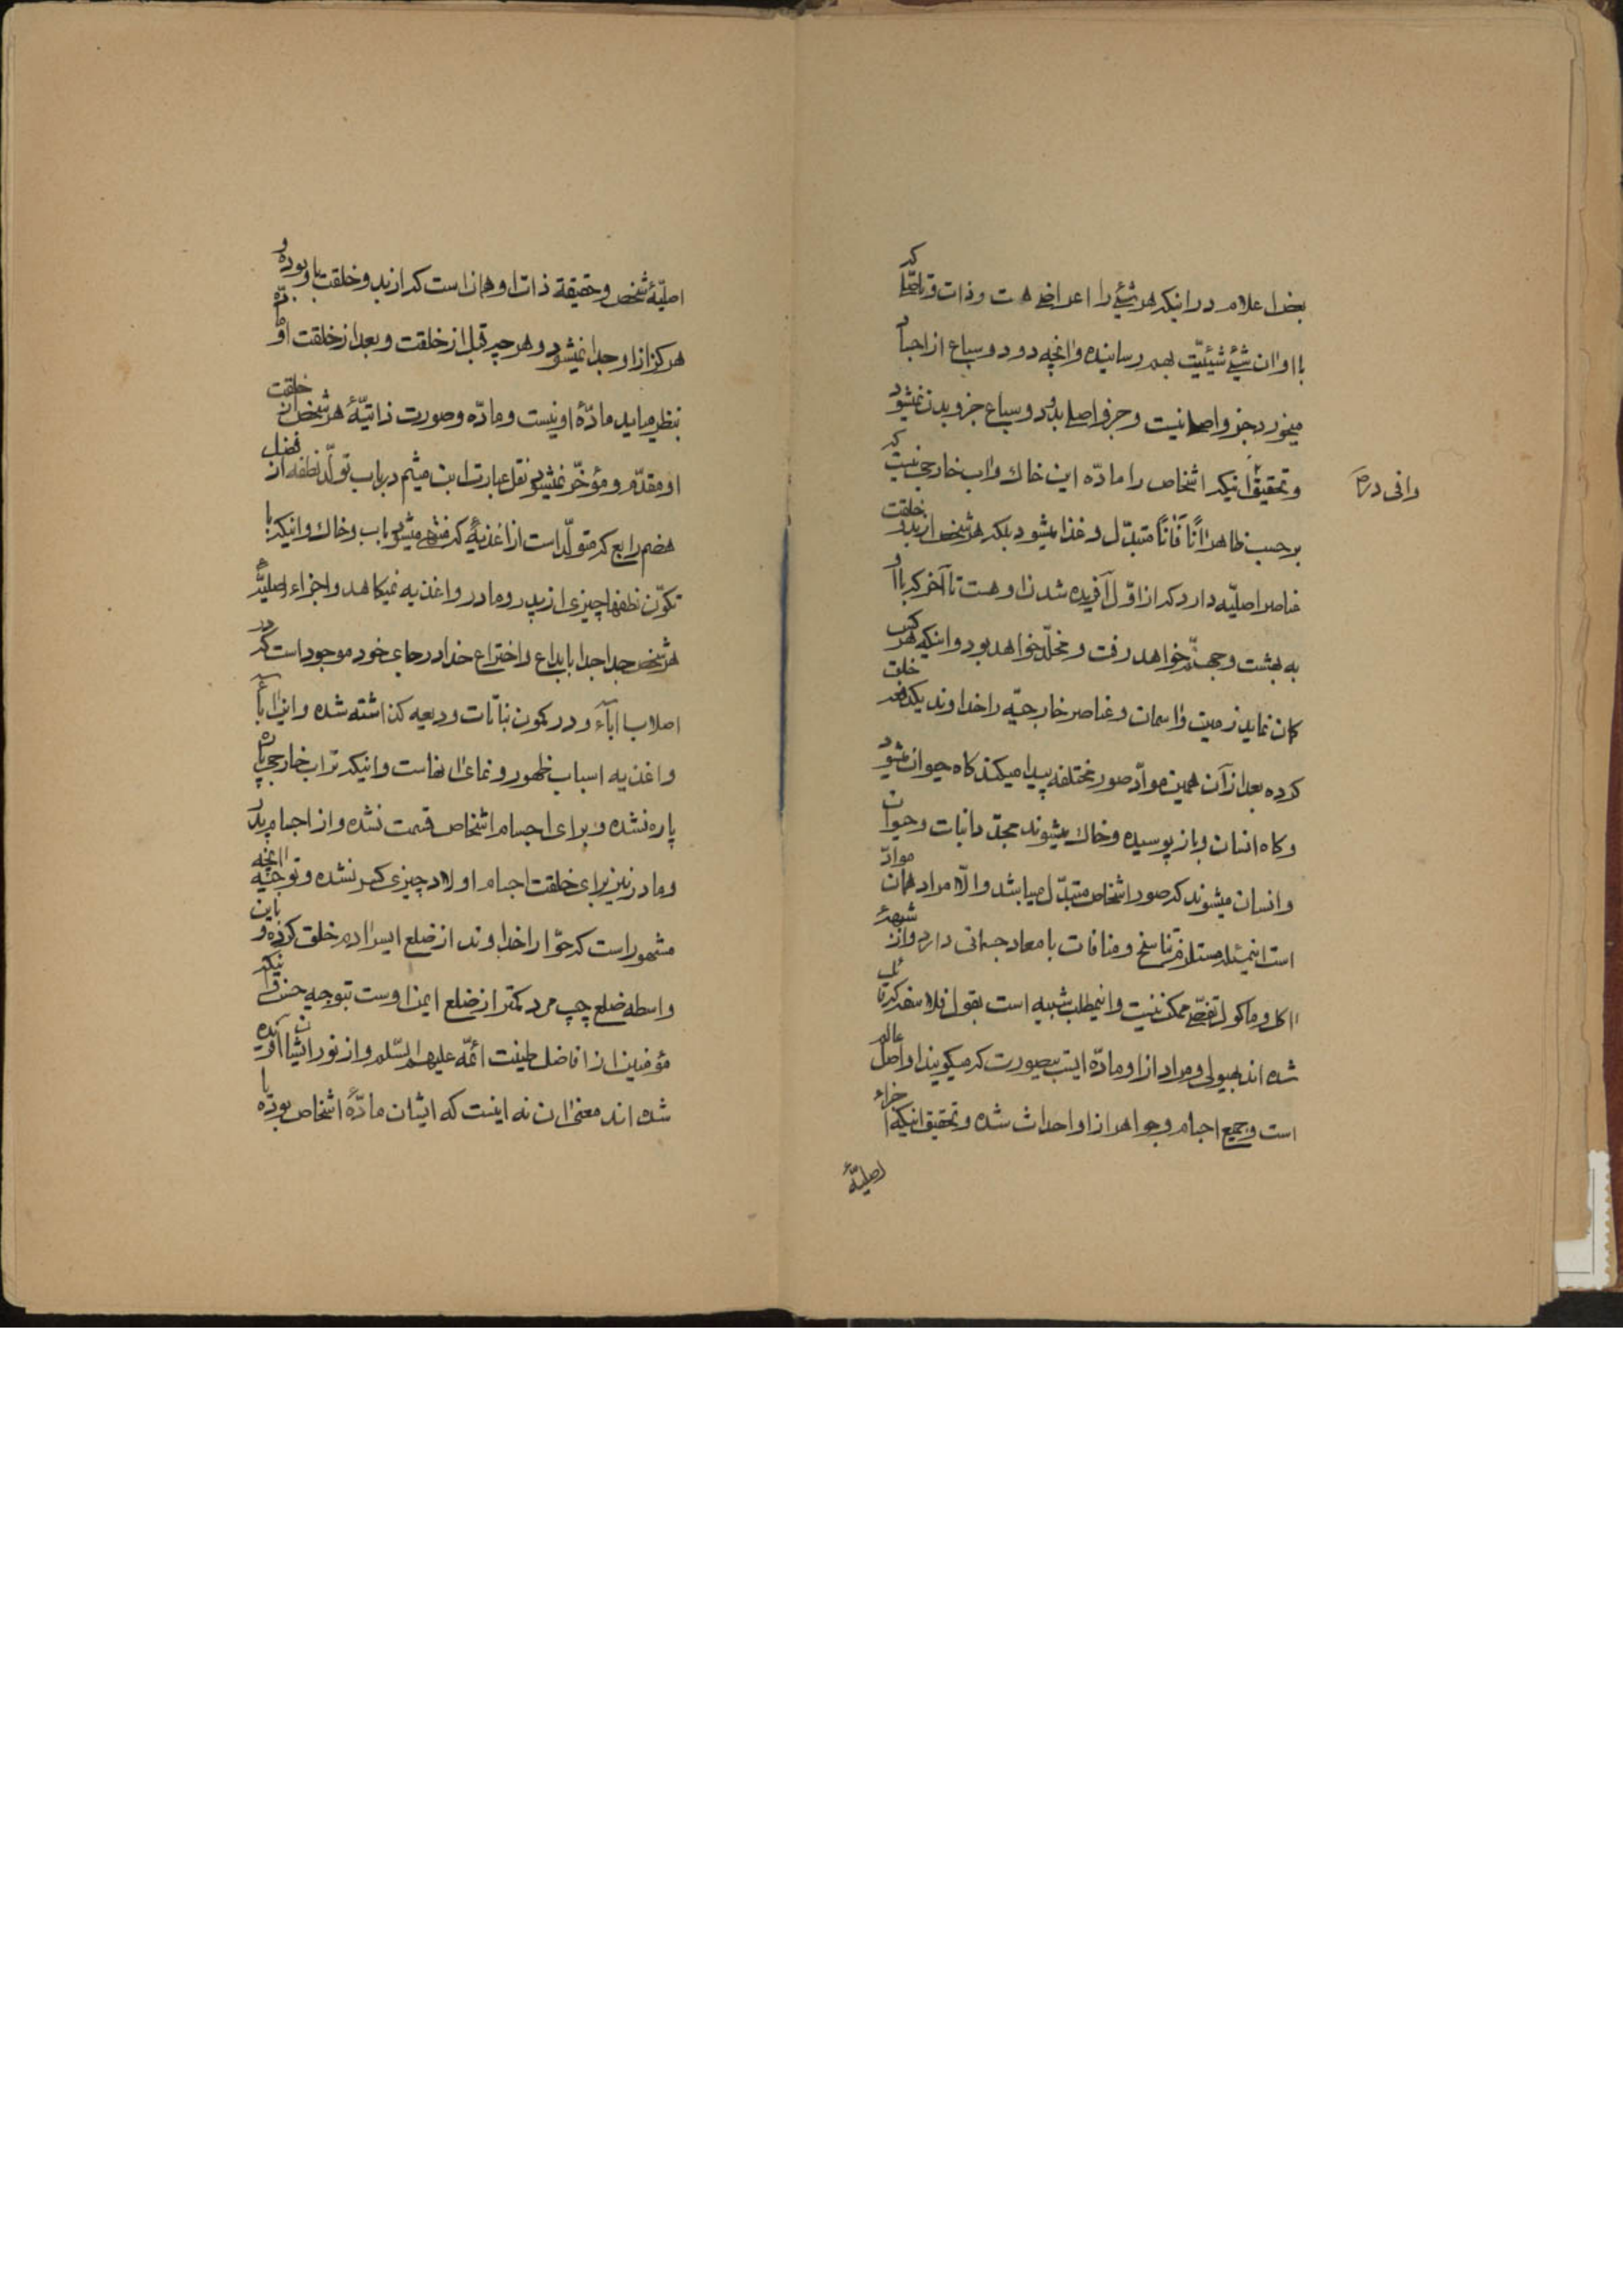 بعض اعلام در اینکه هر شیئی را اعراضی هست و ذات و که
با او ان شیئ شیئیّت بهم رسانیده و انچه دود و سباع از اجساد
میخورد جزو اصلی نیست و جزو اصلی بدن دود و سباع جزو بدن نمیشود
و تحقیق انیکه اشخاص را مادّه این خاک و اب خارجی نیست که
وافی در
بر حسب ظاهر اناً فاناً متبدّل و غذا میشود بلکه هر شخص از بدو خلقت
عناصر اصلیّه دارد که از اوّل آفریده شدن او هست تا آخر که با او
به بهشت و جهنّم خواهد رفت و مخلّد خواهد بود و اینکه هر کس
کمان نماید زمین و اسمان و عناصر خارجیّه را خداوند یکدفعه خلق
کرده بعد از آن همین موادّ صور مختلفه پیدا میکند کاه حیوان میشود
و کاه انسان و باز پوسیده و خاک میشوند مجدّدا نبات و حیوان
و انسان میشوند که صور اشخاص متبدّل میباشد و الّا مراد همان موادّ
است اینمسئله مستلزم تناسخ و منافات با معاد جسمانی دارد و از شبههٔ
اکل و ماکول تفصّی ممکن نیست و اینمطلب شبیه است بقول فلاسفه که قائل
شده اند بهیولی و مراد از او مادّه ایست بیصورت که میکویند او اصل عالم
است و جمیع اجسام و جواهر از او احداث شده و تحقیق انیکه اجزاء
اصلیّهٔ
اصلیّهٔ شخص و حقیقة ذات او همانست که از بدو خلقت با او بوده و
هرکز از او جدا نمیشود و هر چه قبل از خلقت و بعد از خلقت او
بنظر میاید مادّهٔ او نیست و مادّه و صورت ذاتیّهٔ هر شخص از خلقت
او مقدّم و مؤخّر نمیشود نقل عبارت ابن میثم در باب تولّد نطفه از فضل
هضم رابع که متولّد است از اغذیهٔ که منتهی میشود باب و خاک و انیکه با
تکوّن نطفها چیزی از پدر و مادر و اغذیه نمیکاهد و اجزاء اصلیّهٔ
هر شخص جدا جدا بابداع و اختراع خدا در جای خود موجود است که در
اصلاب اباء و در کمون نباتات ودیعه کذاشته شده و این اباء
و اغذیه اسباب ظهور و نمای انهاست و انیکه تراب خارجی پاره
پاره نشده و برای اجسام اشخاص قسمت نشده و از اجسام پدر
و مادر نیز برای خلقت اجسام اولاد چیزی کسر نشده و توجیه انچه
مشهور است که حوّا را خداوند از ضلع ایسر ادم خلق کرده و باین
واسطه ضلع چپ مرد کمتر از ضلع ایمن اوست بتوجیه حسن و انیکه
مؤمنین از فاضل طینت ائمّه علیهم السّلام و از نور ایشان افریده
شده اند معنی ان نه اینست که ایشان مادّهٔ اشخاص بوده با